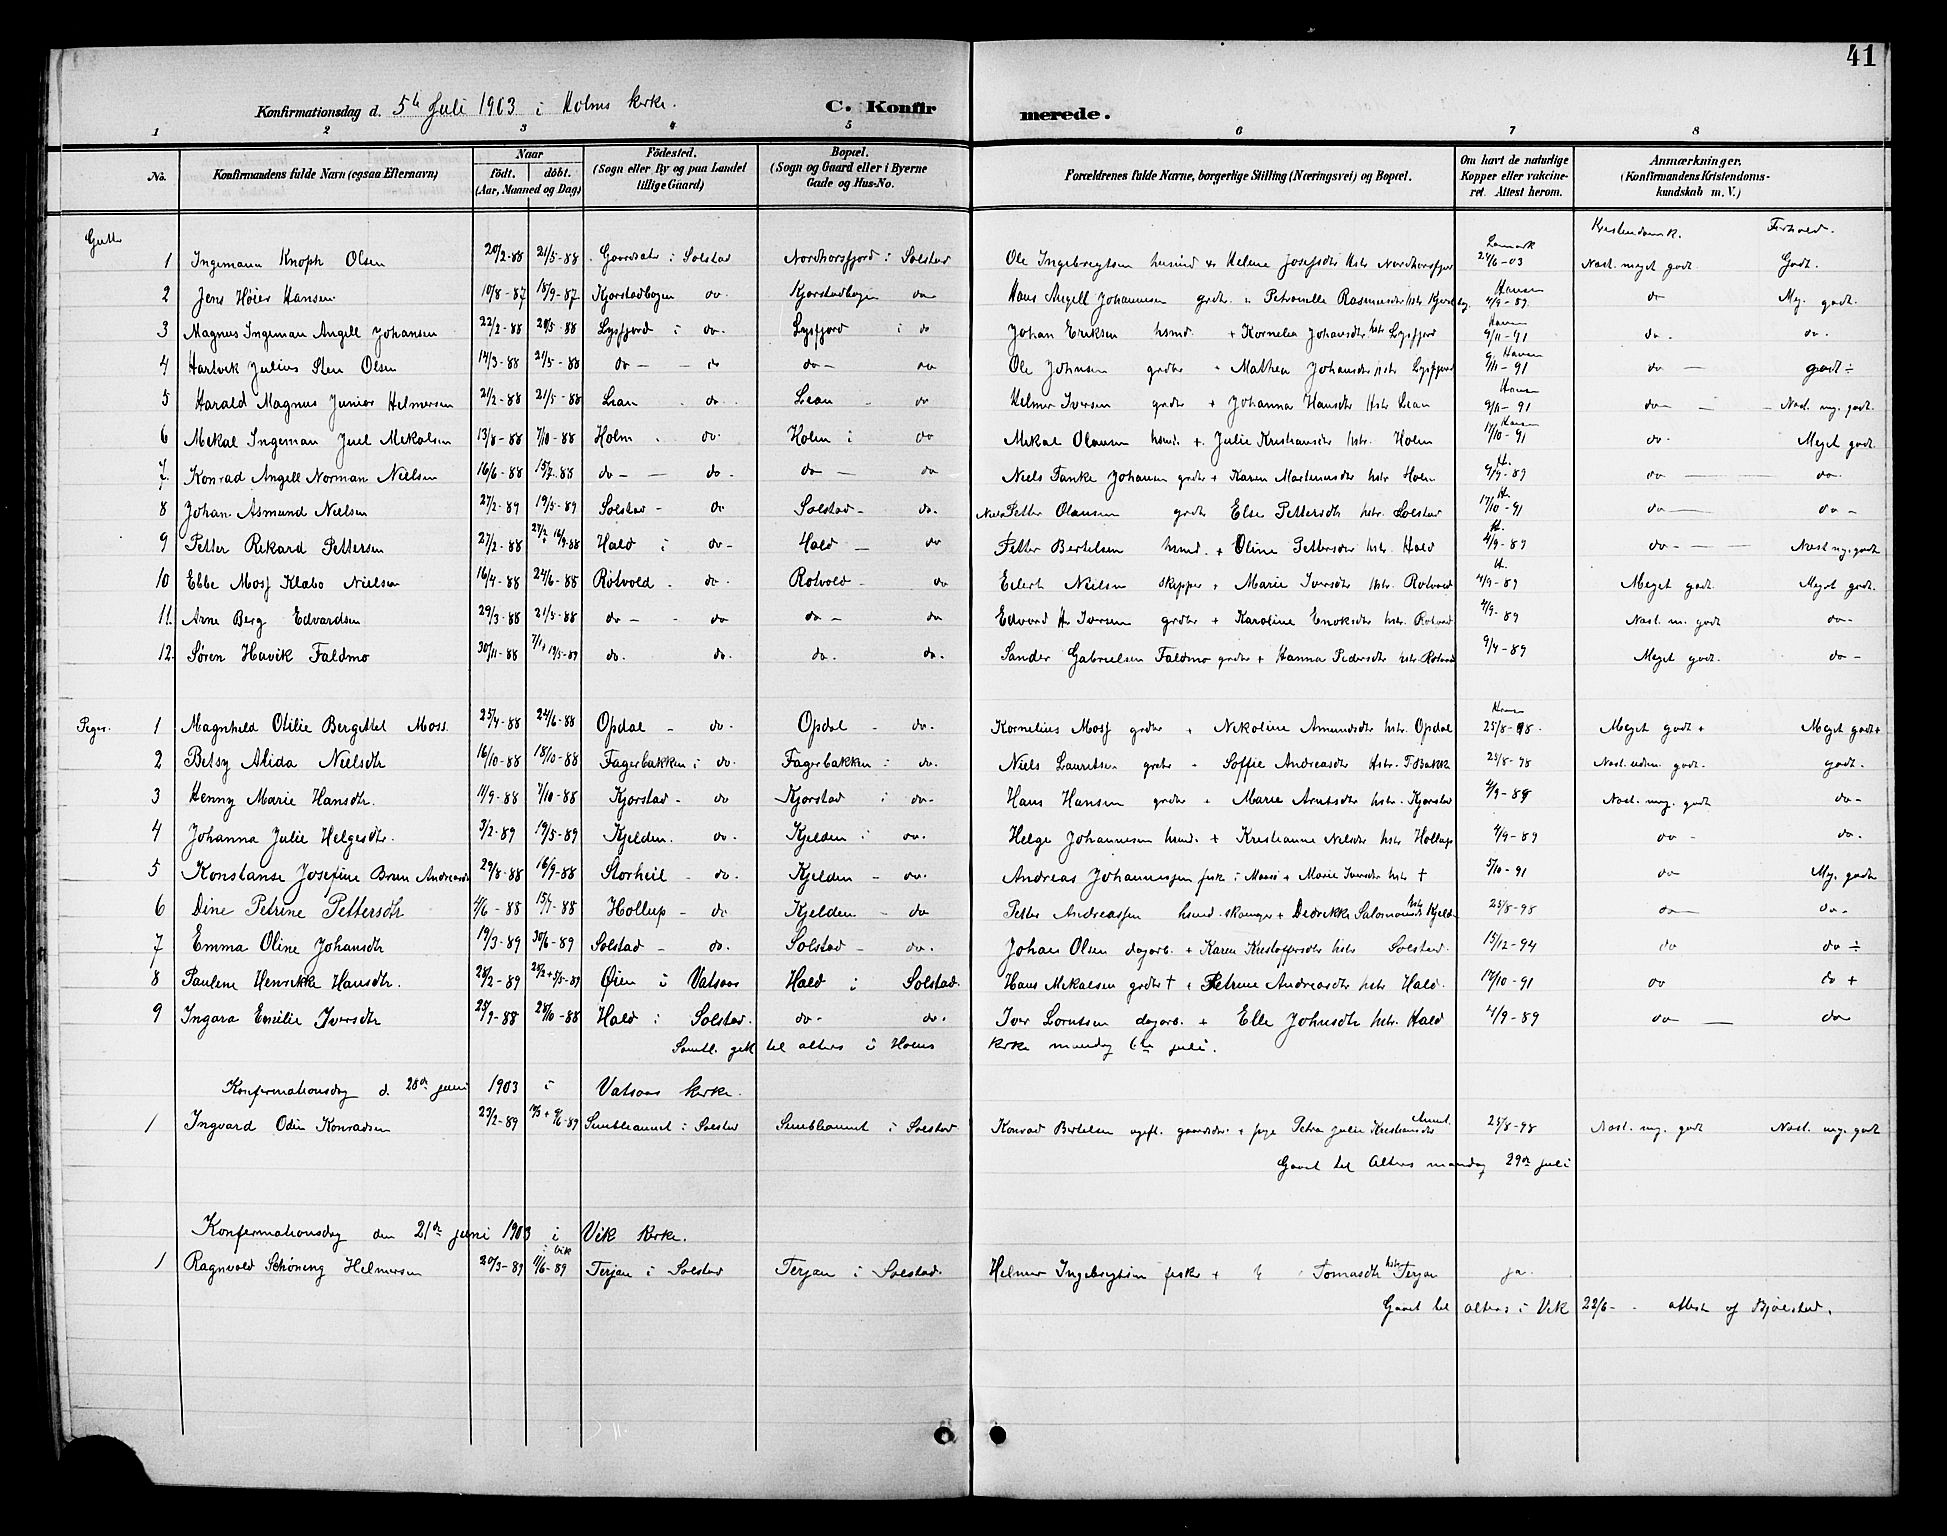 41
Konfirmationsdag d. 5te Juli 1903 i Holms kirke.
C. Konfirmerede.
1 2 3 4 5 6 7 8
No. Konfirmandens fulde Navn (ogsaa Efternavn) Naar födt. döbt. (Aar, Maaned og Dag) Födested. (Sogn eller By og paa Landet tillige Gaard) Bopæl. (Sogn og Gaard eller i Byerne Gade og Hus-No. Forældrenes fulde Navne, borgerlige Stilling (Næringsvei) og Bopæl. Om havt de naturlige Kopper eller vakcineret. Attest herom. Anmærkninger. (Konfirmandens Kristendomskundskab m. V.)
Gutter Kristendomsk. Forhold.
1 Ingemann Knoph Olsen 20/2-88 21/5-88 i Solstad Nordhorsfjord i Solstad Ole Ingebregtsen husmd + Helene Josefsdtr hstr Nordhorsfjor 24/6-03 Nast. meget godt Godt.
2 Jens Höier Hansen 10/8-87 18/9-87 Kjorstadbogen do. Kjorstadbogen do Hans Angell Johannesen grdbr + Petronelle Rasmusdtr hstr Hansen 4/9-89 do My. godt.
3 Magnus Ingeman Angell Johansen 22/2-88 20/5-88 Lysfjord i do. Lysfjord i do Johan Eriksen hsmd. + Kornelia Johansdtr hstr Lysfjord 9/11-91 do. do.
4 Hartvik Julius Sten Olsen 14/3-88 21/5-88 do - do do - do Ole Johnsen grdbr + Mathea Johansdtr hstr Lysfjord 9/11-91 do godt ÷
5 Harald Magnus Junior Helmersen 21/2-88 21/5-88 Lean - do Lean - do Helmer Iversen grdbr + Johanna Hansdtr hstr Lean 9/11-91 do - Nast. my. godt.
6 Mikal Ingeman Juel Mikalsen 13/8-88 7/10-88 Holm i do. Holm i do Mikal Olausen hsmd. + Julie Kristiansdtr hstr. Holm 17/10-91 do. Meget godt.
7. Konrad Angell Norman Nielsen 16/6-88 15/7-88 do - do. do - do Niels Fanke Johansen grdbr + Karen Martinusdtr hstr Holm 9/9-89 do do.
8 Johan Asmund Nielsen 27/2-89 19/5-89 Solstad - do Solstad - do. Niels Petter Olausen grdbr Else Pettersdtr hstr. Solstad 17/10-91 do do -
9 Petter Rikard Pettersen 27/2-88 Hald i do - Hald - do Petter Bertelsen husmd. + Oline Pettersdtr hstr. Hald 4/9-89 do - Nast my. godt
10 Ebbe Mosf Klabo Nielsen 16/4-88 24/6-88 Rotvold - do. Rotvold - do Eilert Nielsen skipper + Marie Iversdtr hstr Rotvold 4/9-89 Meget godt Meget godt.
11. Arne Berg Edvardsen 29/3-88 21/5-88 do - do do - do Edvard Hr Iversen grdbr + Karoline Enoksdtr hstr. Rotvold 4/9-89 Nast. m. godt do -
12. Sören Havik Faldmo 30/11-88 7/1 + 19/5-89 do. do. do. do. Sander Gabrielsen Faldmo grdbr + Hanna Pedersdtr hstr Rotvold 9/4-89 Meget godt. do -
Piger. 1 Magnhild Otilie Bergettel Moss. 25/4-88 24/6-88 Opdal - do. Opdal - do. Kornelius Mosf grdbr + Nikoline Amundsdtr hstr Opdal 25/8-98. Meget godt + Meget godt +
2 Betsy Alida Nielsdtr 16/10-88 18/10-88 Fagerbakken i do. Fagerbakken i do. Niels Lauritsen grbr + Soffie Andreasdtr hstr. F.Bakk 25/8-98 Nast. udm. godt. godt.
3 Henny Marie Hansdtr. 11/9-88 7/10-88 Kjorstad - do Kjorstad i do. Hans Hansen grdbr + Marie Arntsdtr hstr. Kjorstad 4/9-89 Nast. my. godt do -
4 Johanna Julie Helgesdtr. 3/2-89 19/5-89 Kjelden. do. Kjelden i do. Helge Johannesen husmd. + Kristianne Nilsdtr hstr Hollup 4/9-89 do - do.
5 Konstanse Josefine Brun Andreasdtr 29/8-88 16/9-88 Storheil - do. Kjelden - do. Andreas Johannesen fisk i Mosö + Marie Iversdtr hstr † 5/10-91 do My. godt
6 Dine Petrine Pettersdtr 4/6-88 15/7-88 Hollup - do Kjelden - do Petter Andreassen husmd. + Didrikke Salomonsdtr hstr Kjeld 25/8-98 do do -
7 Emma Oline Johansdtr 19/3-89 30/6-89 Solstad - do. Solstad - do. Johan Olsen dagarb. + Karen Kristoffersdtr hstr Solstad 15/12-94 do do ÷
8 Pauline Henrikke Hansdtr. 28/2-89 Öien i Vatsaas Hald i Solstad. Hans Mikalsen grdbr † + Petrine Andreasdtr hstr Hald. 17/10-91 do do +
9 Ingara Emilie Iversdtr 25/9-88 28/10-88 Hald i Solstad. do - do. Iver Lorntsen dagarb. + Elle Johnsdtr hstr. Hald 4/9-89 do do
Samtl. gik til alters i Holms kirke mandag 6te juli.
Konfirmationsdag d. 28de juni 1903 i Vatsaas kirke.
1 Ingvard Odin Konradsen 23/2-89 i Solstad i Solstad Konrad Bertelsen ugift. + pige Petra Julie Kristiansdtr 25/8-98 Nast. my. godt Nast. my. godt
Gaaet til Alters mandag 29de juli
Konfirmationsdag den 21de juni 1903 i Vik Kirke.
1 Ragnvald Schöning Helmersen 20/3-89 i Vik 11/6-89 Terjan i Solstad Terjan i Solstad. Helmer Ingebrigtsen fisker + Tomasdtr hstr Terjan ja.
Gaaet til alters i Vik 22/6 - attest af Bjölstad.